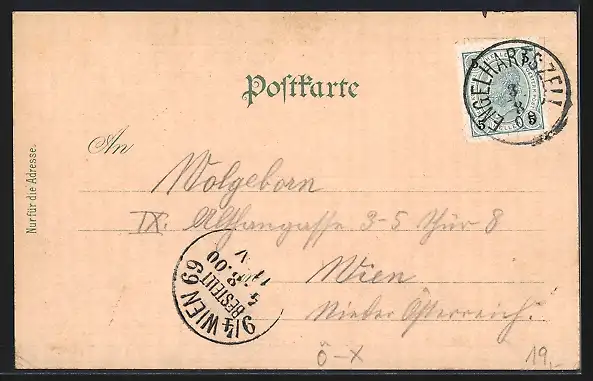 Postkarte
ENGELHARTSZELL
3
8
00
An
Wolgeborn
IX. Althangasse 3-5 Thür 8
Wien
Nieder Österreich.
Nur für die Adresse.
9/4 WIEN 69
BESTELLT
4.8.00
11.V
Ö-X
19,-